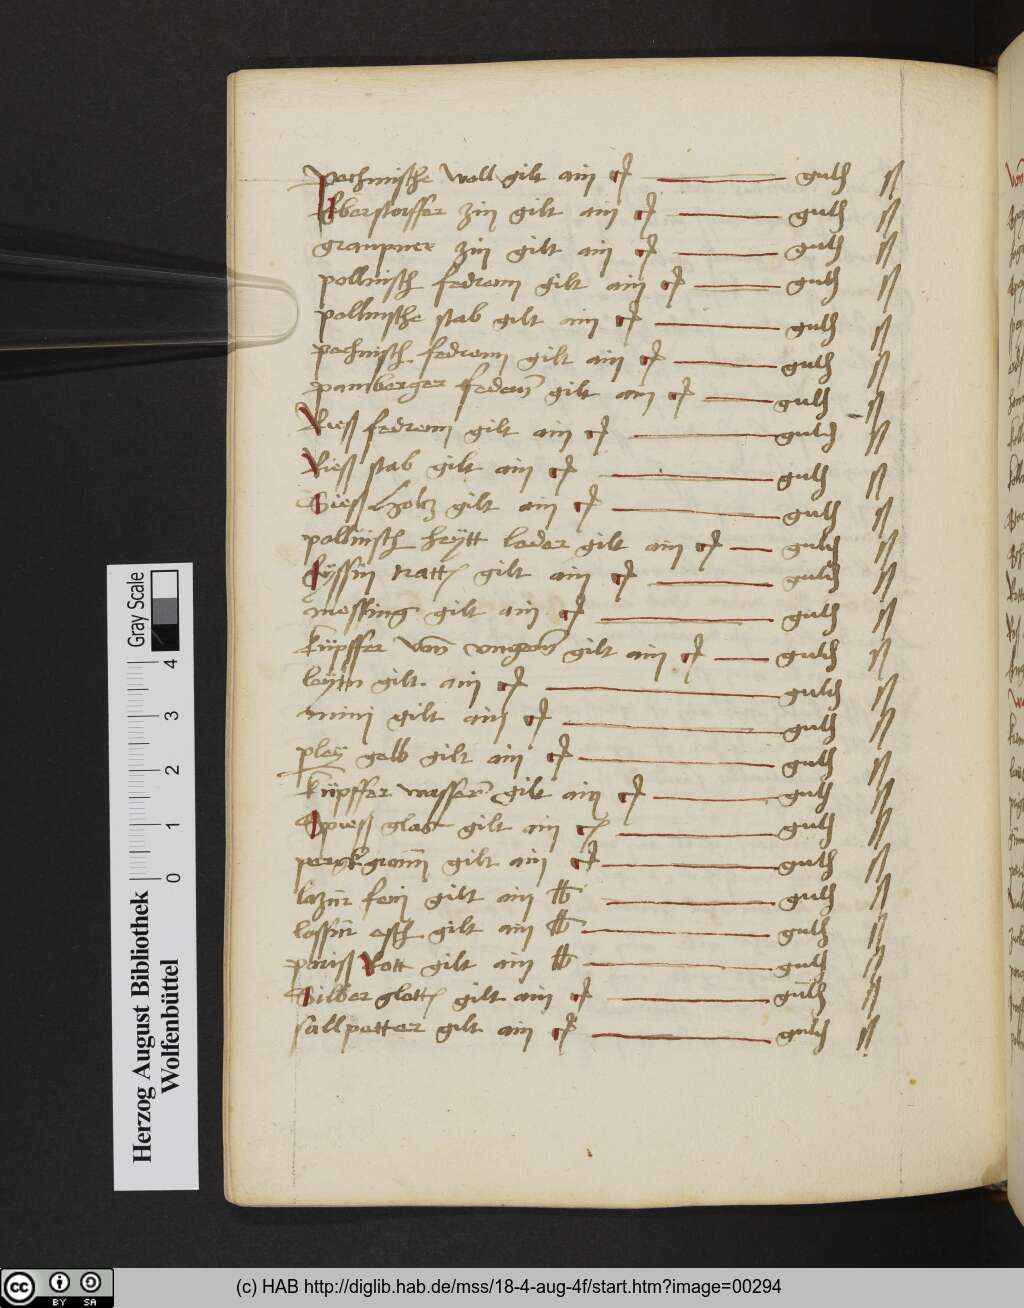 pechmische woll gilt ain ct guld ß
Eberstorffer zin gilt ain ct guld ß
graupner zin gilt ain ct guld ß
pollnisch federnn gilt ain ct guld ß
pollnische stab gilt ain ct guld ß
pechmisch federnn gilt ain ct guld ß
pamberger federn gilt ain ct guld ß
Rieß federnn gilt ain ct guld ß
Rieß stab gilt ain ct guld ß
Siess Holtz gilt ain ct guld ß
pollnisch heytt leder gilt ain ct guld ß
gilt ain ct guld ß
messing gilt ain ct guld ß
küpffer von ungern gilt ain ct guld ß
leym gilt ain ct guld ß
mini gilt ain ct guld ß
pley gelb gilt ain ct guld ß
küpffer wasser gilt ain ct guld ß
Spieß glas gilt ain ct guld ß
perckgrönn gilt ain ct guld ß
lazur fein gilt ain lb guld ß
lassur esch gilt ain lb guld ß
pariss Rott gilt ain lb guld ß
Silber glett gilt ain ct guld ß
sallpetter gilt ain ct guld ß
Herzog August Bibliothek
Wolfenbüttel
Gray Scale
0 1 2 3 4
cc BY SA
(c) HAB http://diglib.hab.de/mss/18-4-aug-4f/start.htm?image=00294